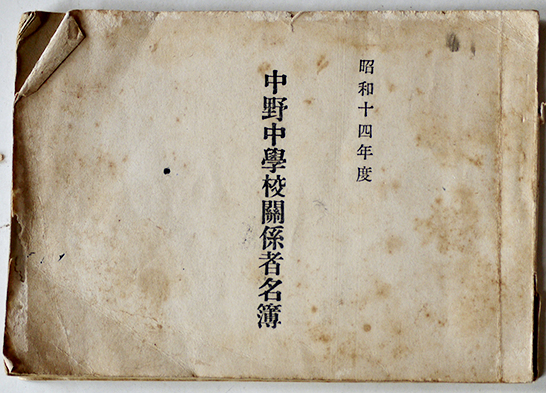 昭和十四年度
中野中學校關係者名簿